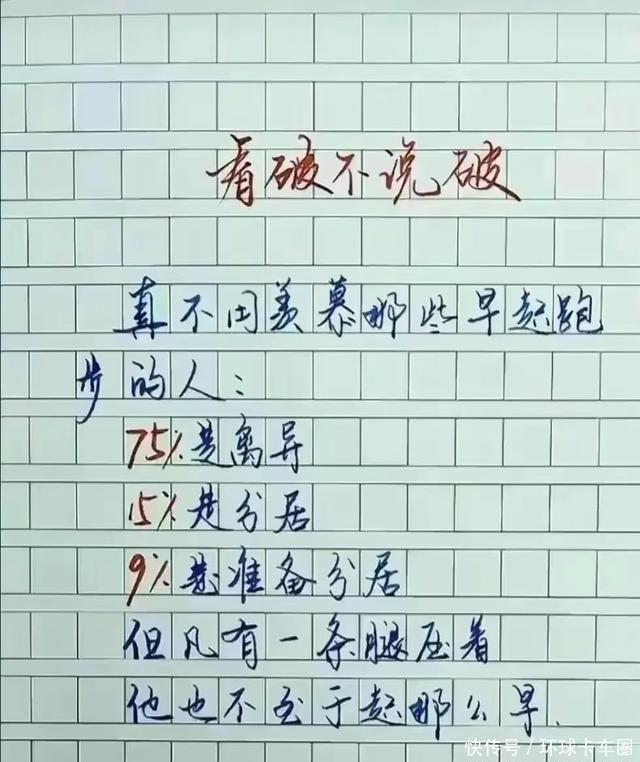 看破不说破
真不用羡慕那些早起跑
步的人：
75%是离异
15%是分居
9%是准备分居
但凡有一条腿压着
他也不至于起那么早.
快传号/环球卡车圈